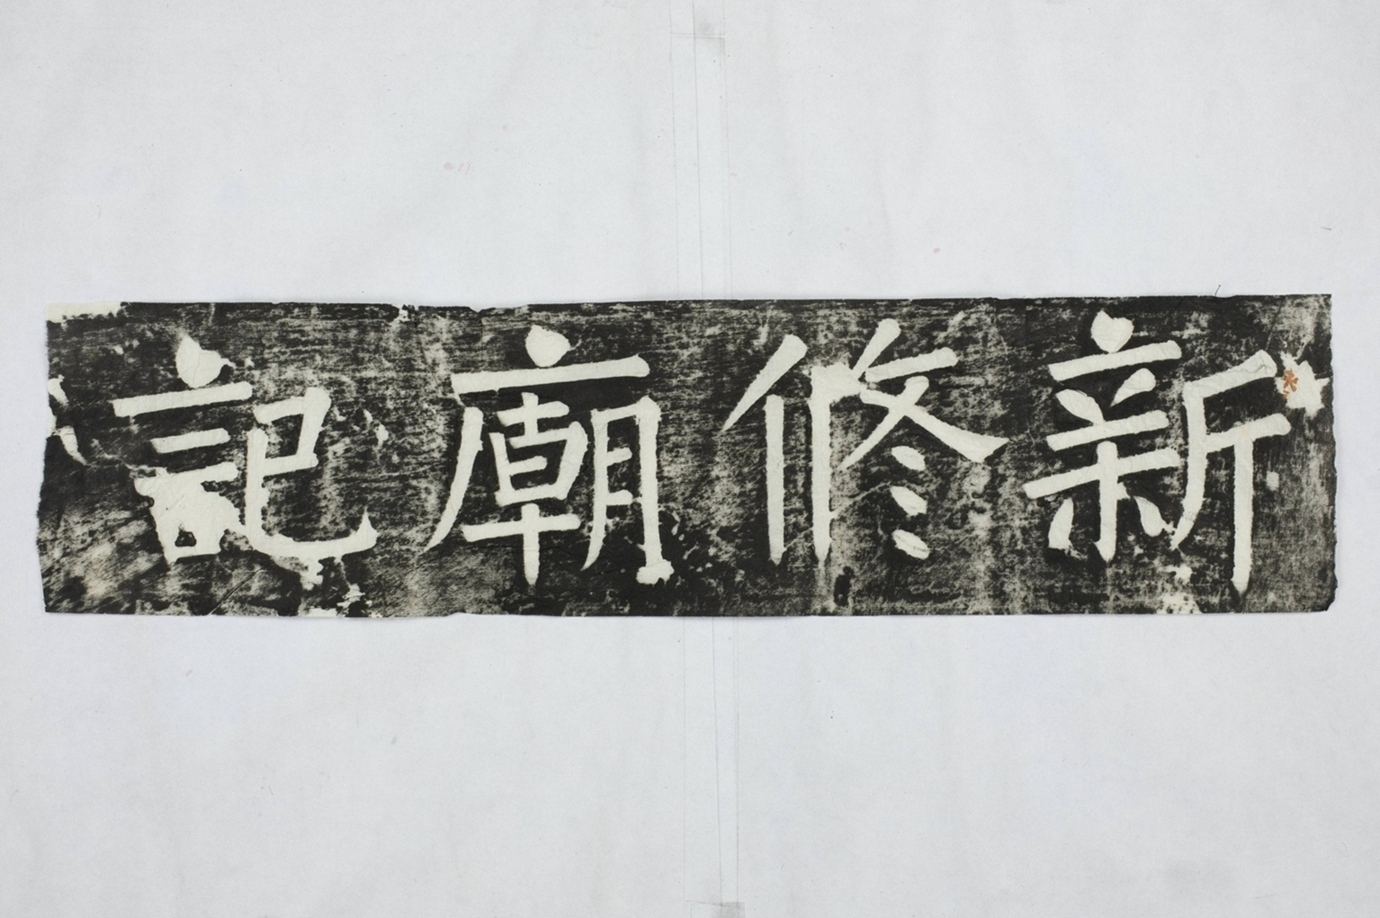 新修廟記